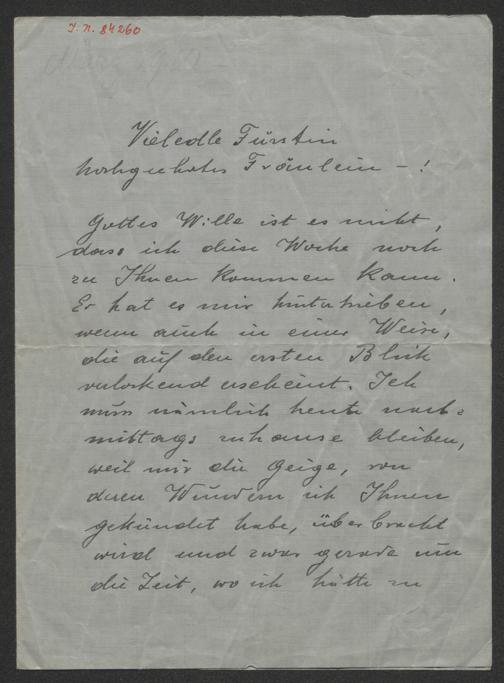 J. N. 84260
März 19
Vieledle Fürstin
hochgeehrtes Fräulein – !
Gottes Wille ist es nicht,
dass ich diese Woche noch
zu Ihnen kommen kann.
Er hat es mir hintertrieben,
wenn auch in einer Weise,
die auf den ersten Blick
verlockend erscheint. Ich
muss nämlich heute nach-
mittags zuhause bleiben,
weil mir die Geige, von
deren Wundern ich Ihnen
gekündet habe, überbracht
wird und zwar gerade um
die Zeit, wo ich hätte zu